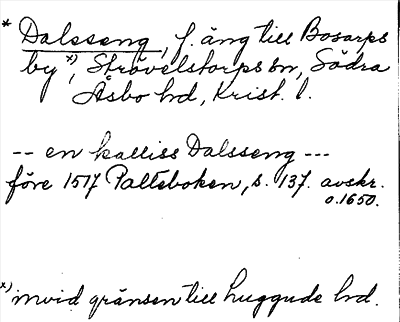 * Dalsseng, f. äng till Bosarps
by *), Strövelstorps sn, Södra
Åsbo hd, Krist. l.
-- en kalliss Dalsseng ---
före 1517 Palteboken, s. 137. avskr.
o. 1650.
*) invid gränsen till Luggude hd.